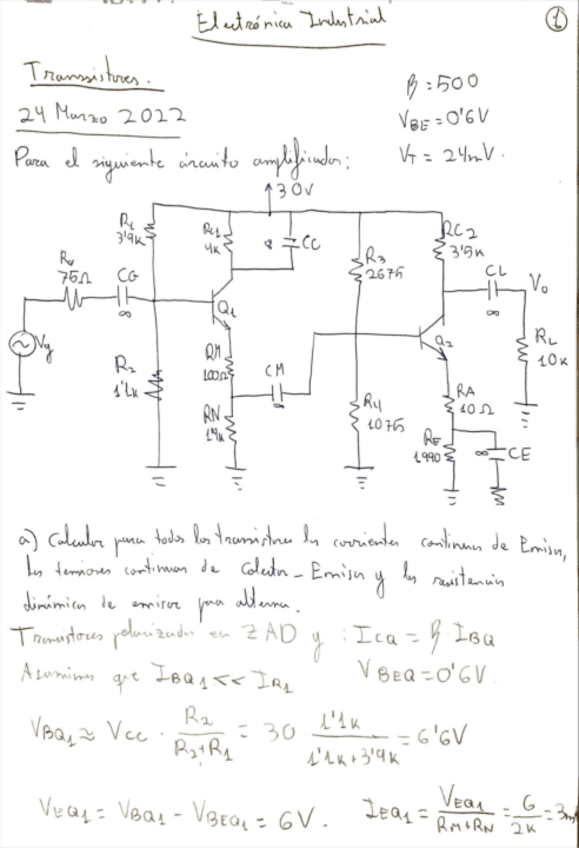 Electrónica Industrial
1
Transsistores.
24 Marzo 2022
β = 500
VBE = 0'6V
VT = 24mV.
Para el siguiente circuito amplificador:
30V
R1
3'9K
RC1
4K
CC
∞
R3
2675
RC2
3'5K
CL
∞
Vo
Rg
75Ω
CG
∞
Q1
Q2
RL
10K
Vg
R2
1'1K
RM
100Ω
CM
∞
RN
1'9K
R4
1075
RA
10Ω
RE
1990
∞
CE
a) Calcular para todos los transistores las corrientes continuas de Emisor,
las tensiones continuas de Colector-Emisor y las resistencias
dinámicas de emisor para alterna.
Transistores polarizados en ZAD y : ICQ = β·IBQ
Asumimos que IBQ1 << IR1
VBEQ = 0'6V
VBQ1 ≈ Vcc · R2/(R2+R1) = 30 1'1K/(1'1K+3'9K) = 6'6V
VEQ1 = VBQ1 - VBEQ1 = 6V. IEQ1 = VEQ1/(RM+RN) = 6/2K = 3m